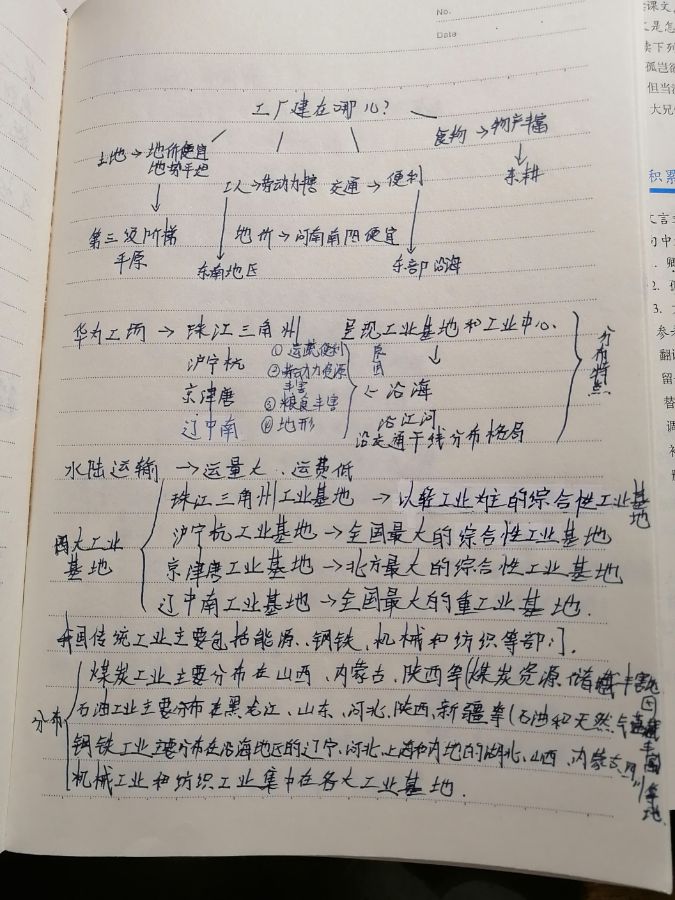 No.
Date
工厂建在哪儿?
土地→地价便宜
地势平坦
食物→物产丰富
工人→劳动力丰富 交通→便利
东耕
第三级阶梯
平原
地价→河南南阳便宜
东南地区
东部沿海
华为工场→珠江三角州 呈现工业基地和工业中心.
沪宁杭 ①运输便利 原因
京津唐 ②劳动力资源丰富
③粮食丰富 沿海
辽中南 ④地形 沿江河
沿交通干线分布格局
分布特点
水陆运输→运量大.运费低
四大工业基地
珠江三角州工业基地→以轻工业为主的综合性工业基地
沪宁杭工业基地→全国最大的综合性工业基地
京津唐工业基地→北方最大的综合性工业基地
辽中南工业基地→全国最大的重工业基地.
我国传统工业主要包括能源、钢铁、机械和纺织等部门.
分布
煤炭工业主要分布在山西、内蒙古、陕西等(煤炭资源储藏丰富地
石油工业主要分布在黑龙江、山东、河北、陕西、新疆等(石油和天然气
钢铁工业主要分布在沿海地区的辽宁、河北、上海和内地的湖北、山西、内蒙古、四川等地.
机械工业和纺织工业集中在各大工业基地.
积累